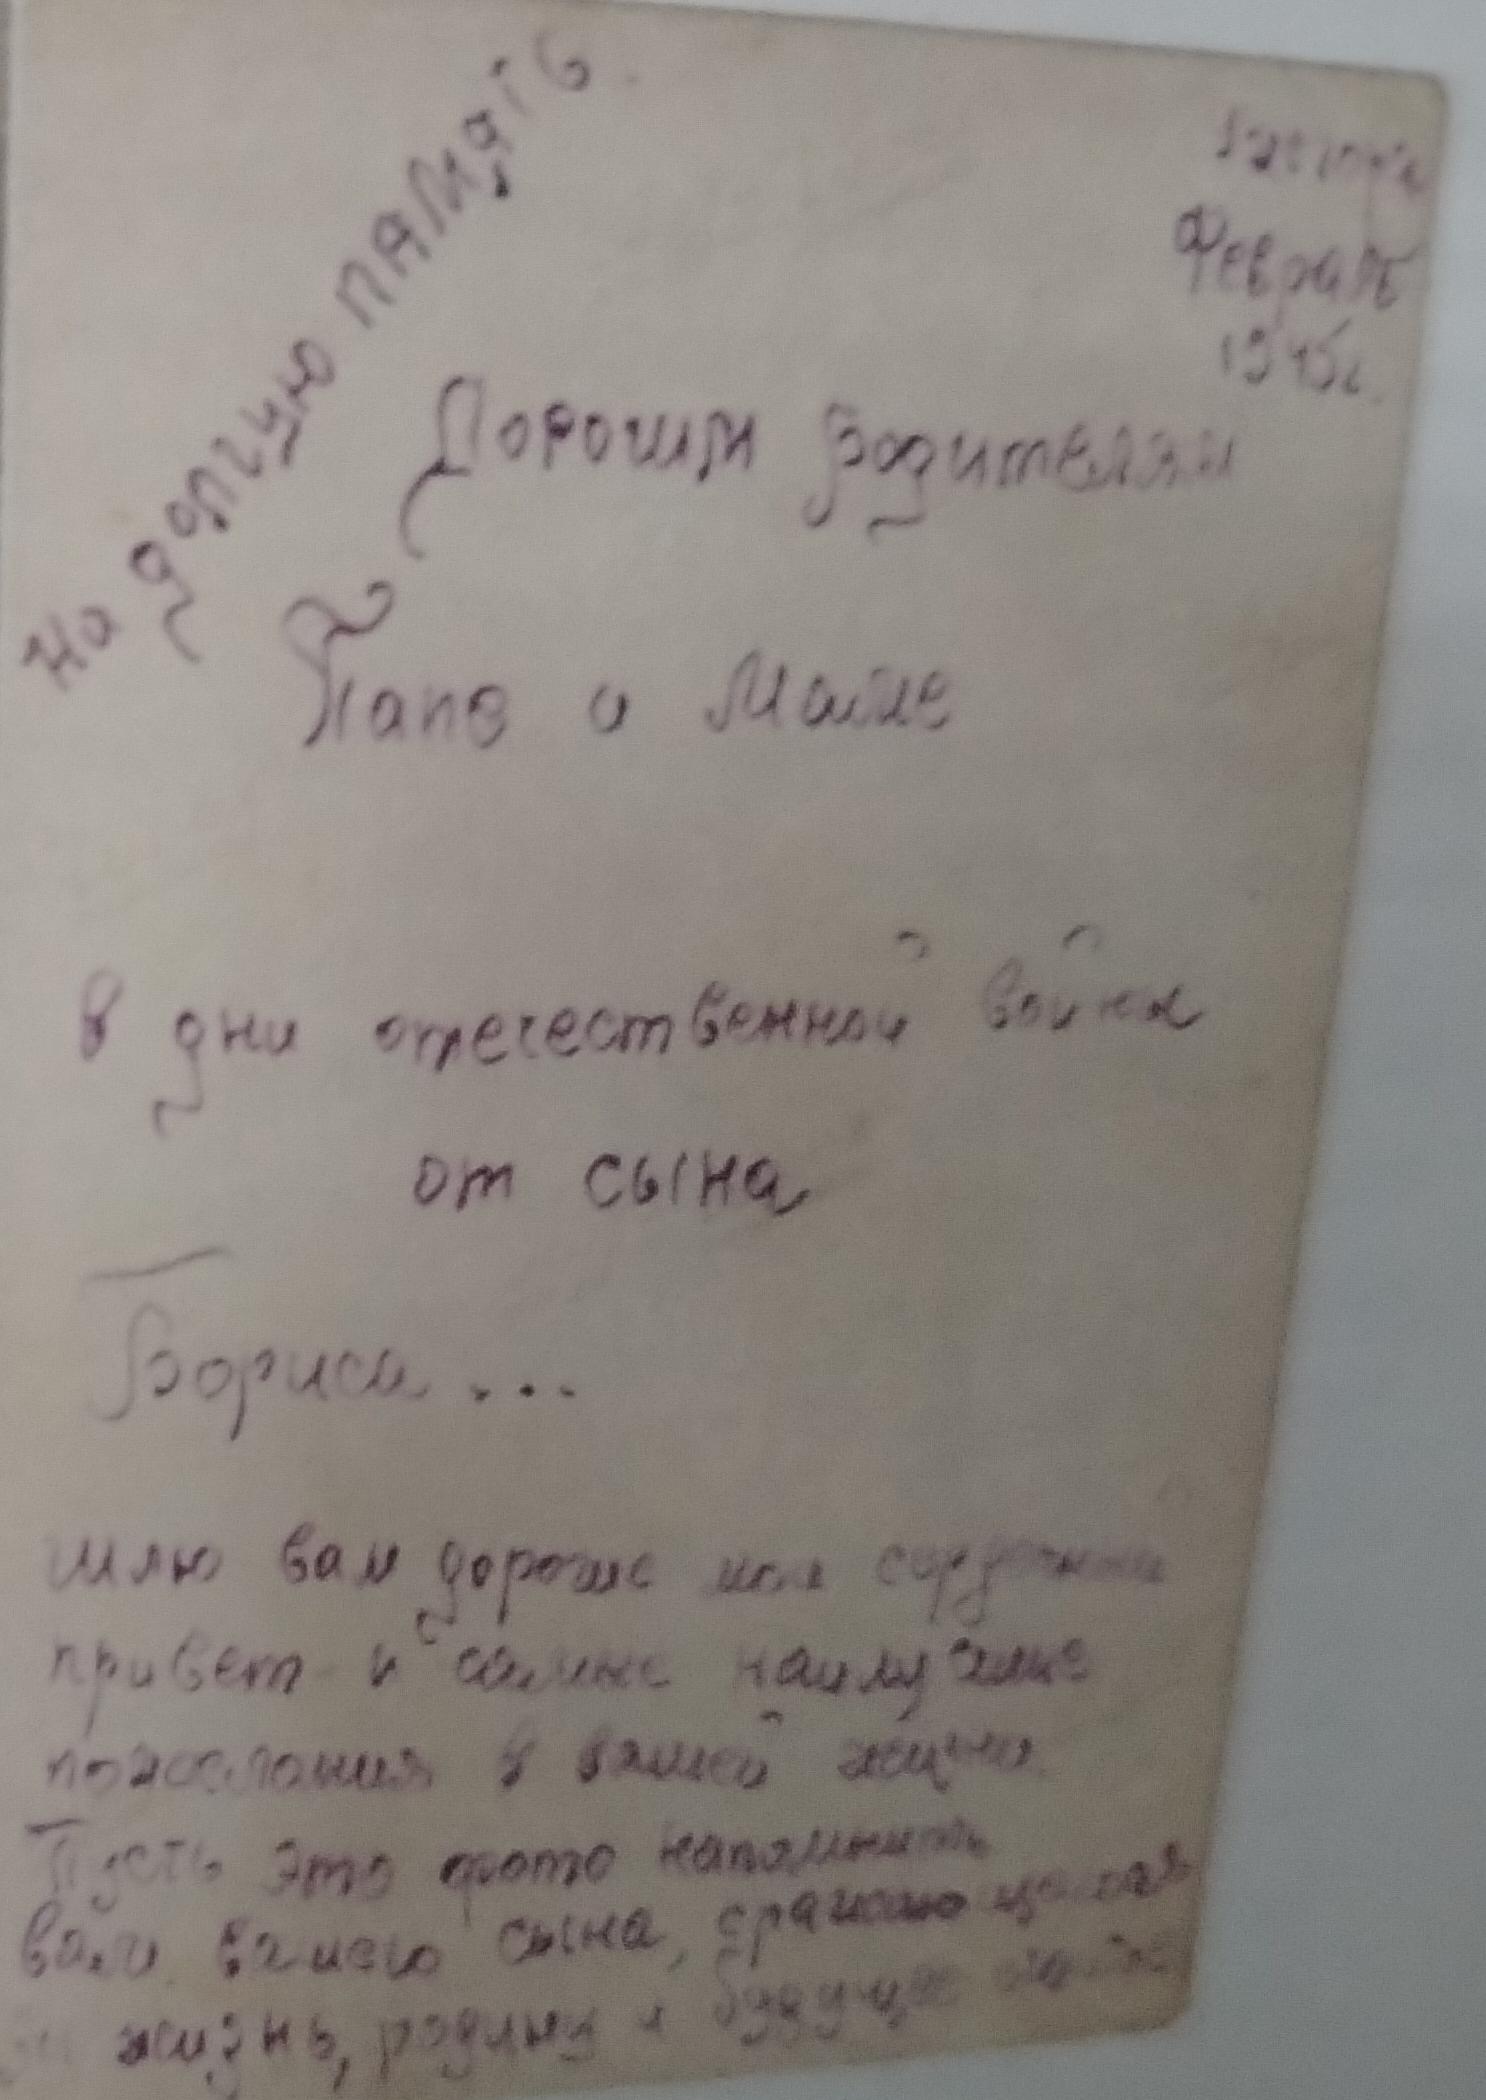 На долгую память.
Февраль
1945г.
Дорогим родителям
Папе и Маме
в дни отечественной войны
от сына
Бориса...
шлю вам дорогие мои сердечный
привет и самые наилучшие
пожелания в вашей жизни.
Пусть это фото напомнит
вам вашего сына,
жизнь, родину и будущее